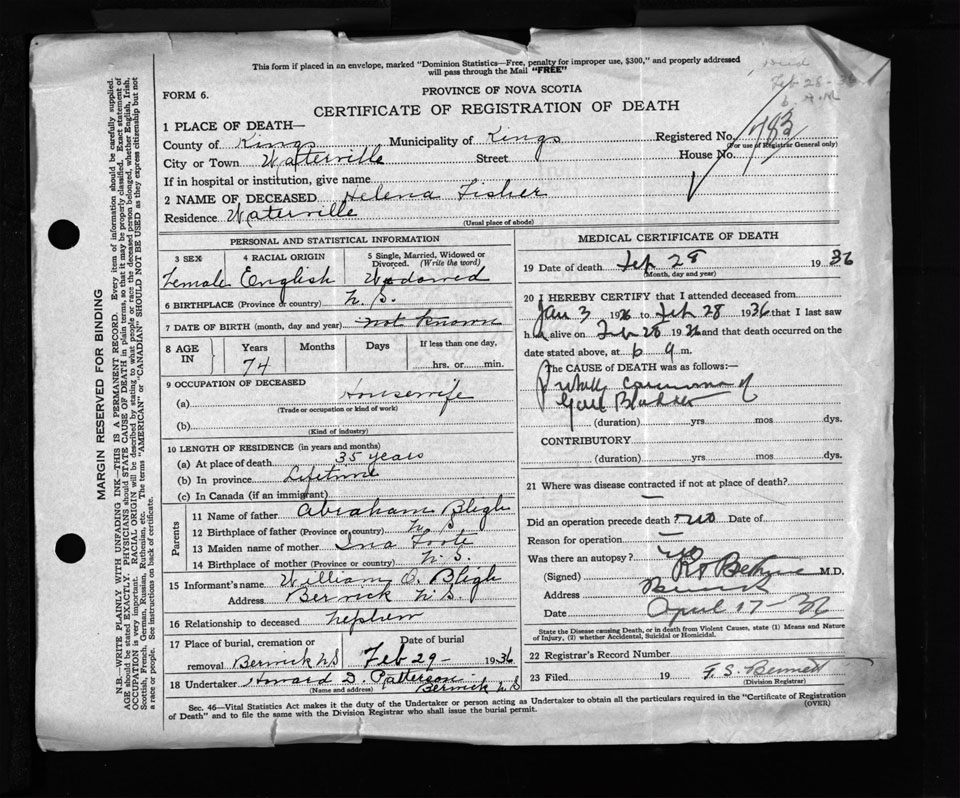 This form if placed in an envelope, marked "Dominion Statistics—Free, penalty for improper use, $300," and properly addressed
will pass through the Mail "FREE"
Feb 28-36
6 A.M
FORM 6.
PROVINCE OF NOVA SCOTIA
CERTIFICATE OF REGISTRATION OF DEATH
1 PLACE OF DEATH—
County of Kings Municipality of Kings Registered No.
(For use of Registrar General only)
City or Town Waterville Street House No.
If in hospital or institution, give name
2 NAME OF DECEASED Helena Fisher
Residence Waterville
(Usual place of abode)
PERSONAL AND STATISTICAL INFORMATION
3 SEX 4 RACIAL ORIGIN 5 Single, Married, Widowed or Divorced. (Write the word)
Female English Widowed
6 BIRTHPLACE (Province or country) N. S.
7 DATE OF BIRTH (month, day and year) not known
8 AGE IN Years Months Days If less than one day,
74 hrs. or min.
9 OCCUPATION OF DECEASED
(a) Housewife
(Trade or occupation or kind of work)
(b)
(Kind of industry)
10 LENGTH OF RESIDENCE (in years and months)
(a) At place of death 35 years
(b) In province Lifetime
(c) In Canada (if an immigrant)
Parents
11 Name of father Abraham Bligh
12 Birthplace of father (Province or country) N. S.
13 Maiden name of mother Ina Foote
14 Birthplace of mother (Province or country) N. S.
15 Informant's name William O. Bligh
Address Berwick N. S.
16 Relationship to deceased nephew
17 Place of burial, cremation or Date of burial
removal Berwick NS Feb 29- 1936
18 Undertaker Howard D. Patterson
(Name and address) Berwick N S
MEDICAL CERTIFICATE OF DEATH
19 Date of death Feb 28 1936
(Month, day and year)
20 I HEREBY CERTIFY that I attended deceased from
Jan 3 1936 to Feb 28 1936 that I last saw
h alive on Feb 28 1936 and that death occurred on
date stated above, at 6 a m.
The CAUSE of DEATH was as follows:—
Probably Carcinoma of
Gall Bladder
(duration) yrs mos dys.
CONTRIBUTORY
(duration) yrs mos dys.
21 Where was disease contracted if not at place of death?
—
Did an operation precede death no Date of
Reason for operation —
Was there an autopsy? no
(Signed) M.D.
Address Berwick
Date April 17-36
State the Disease causing Death, or in death from Violent Causes, state (1) Means and Nature
of Injury, (2) whether Accidental, Suicidal or Homicidal.
22 Registrar's Record Number
23 Filed 19 F. S. Bennett
(Division Registrar)
Sec. 46—Vital Statistics Act makes it the duty of the Undertaker or person acting as Undertaker to obtain all the particulars required in the "Certificate of Registration
of Death" and to file the same with the Division Registrar who shall issue the burial permit.
(OVER)
MARGIN RESERVED FOR BINDING
N.B.—WRITE PLAINLY WITH UNFADING INK—THIS IS A PERMANENT RECORD. Every item of information should be carefully supplied.
AGE should be stated EXACTLY. PHYSICIANS should STATE CAUSE OF DEATH in plain terms, so that it may be properly classified. Exact statement of
OCCUPATION is very important. RACIAL ORIGIN will be described by stating to what people or race the deceased person belonged, whether English, Irish,
Scottish, French, German, Russian, Ruthenian, etc. The terms "AMERICAN" or "CANADIAN" SHOULD NOT BE USED as they express citizenship but not
a race or people. See instructions on back of certificate.